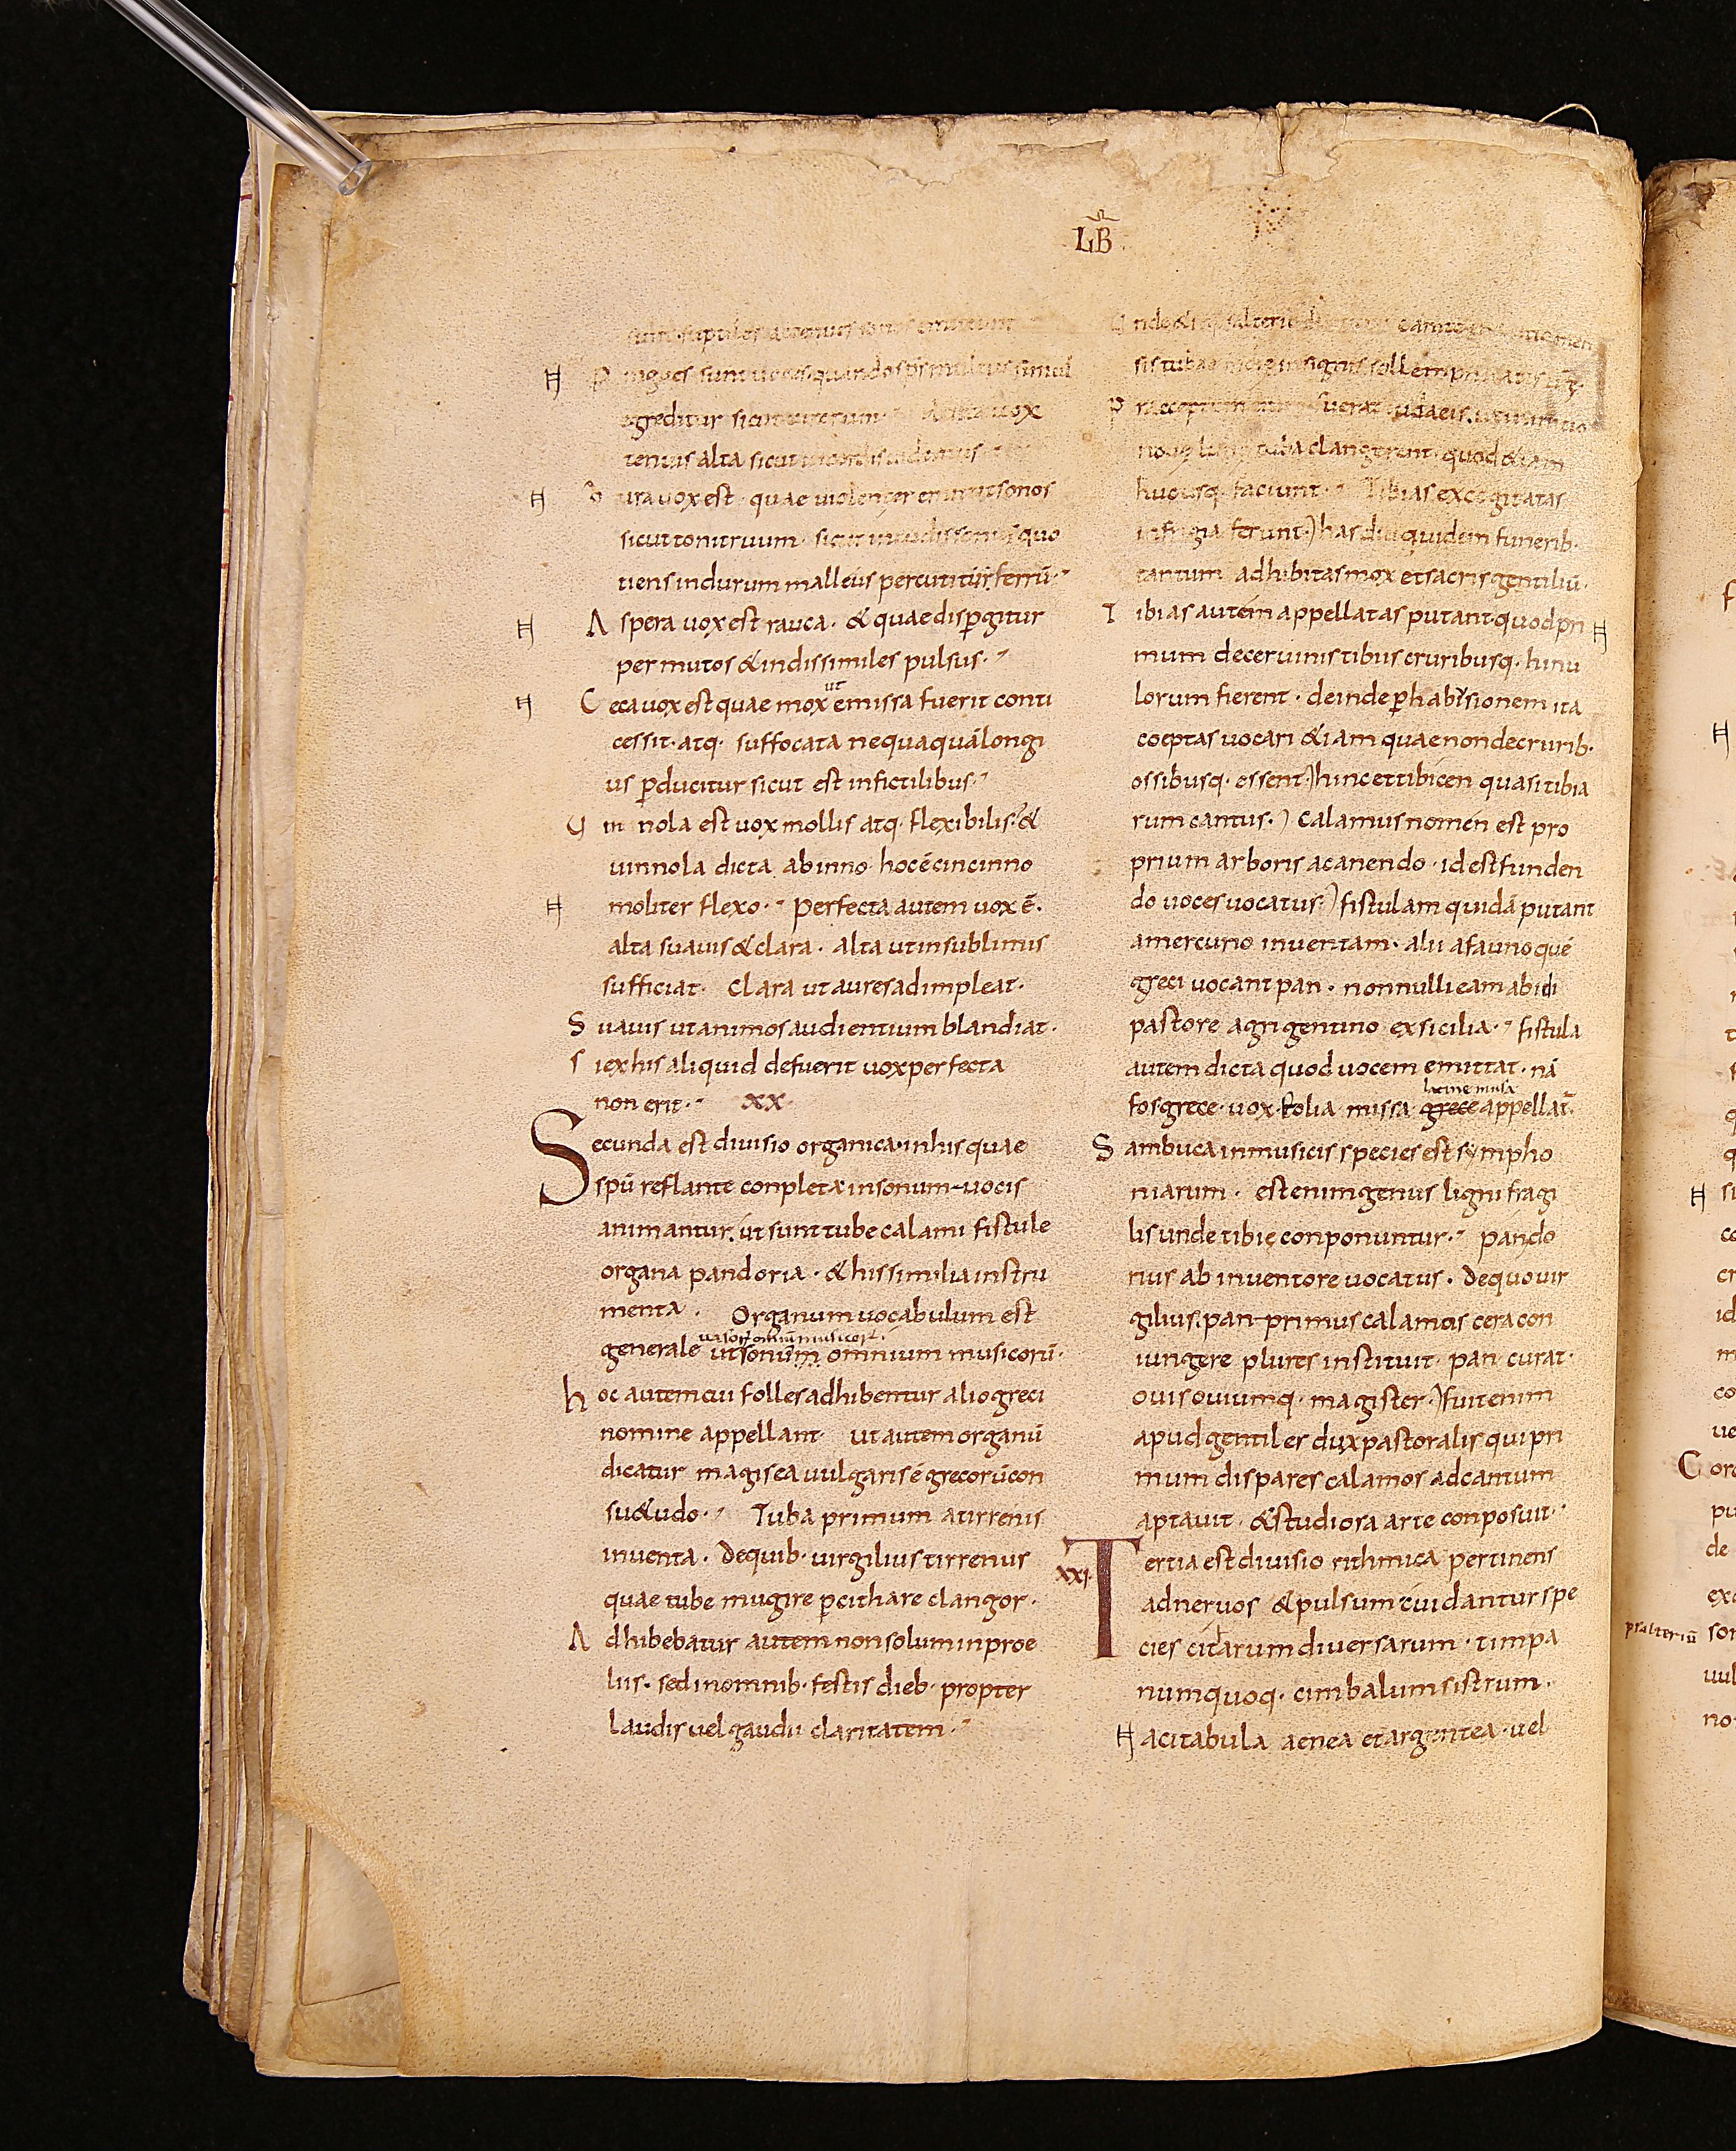 LIB
sunt suptiles acognus sonos emittunt
P ingues sunt uoces quando sps multus simul
egreditur sicut uirorum. Acuta uox
tenuis alta sicut in cordis uidemus
D ura uox est quae uiolenter emittit sonos
sicut tonitruum sicut incudis sonus quo
tiens in durum malleus percutitur ferrū
A spera uox est rauca. & quae dispgitur
per mutos & indissimiles pulsus.
C eca uox est quae mox ut emissa fuerit conti
cessit. atq. suffocata nequaquā longi
us pducitur sicut est in fictilibus.
U in nola est uox mollis atq. flexibilis. &
uinnola dicta ab inno hoc ē cincinno
moliter flexo. perfecta autem uox ē.
alta suauis & clara. alta ut in sublimis
sufficiat. Clara ut aures adimpleat.
S uauis ut animos audientium blandiat.
S i ex his aliquid defuerit uox perfecta
non erit. XX
Secunda est diuisio organica in his quae
spū reflante conpleta in sonum uocis
animantur. ut sunt tube calami fistule
organa pandoria. & his similia instru
menta. Organum uocabulum est
uasorū omniū musicorū
generale ut sonum omnium musicorū.
h oc autem cui folles adhibentur alio greci
nomine appellant ut autem organū
dicatur magis ea uulgaris ē grecorū con
su&udo. Tuba primum a tirrenis
inuenta. De quib. uirgilius tirrenus
quae tube mugire p cithare clangor.
A dhibebatur autem non solum in proe
liis. sed in omnib. festis dieb. propter
laudis uel gaudii claritatem.
U nde & in psalterio
sis tubae insignis sollempnitatis urē.
P raeceptum fuerat iudaeis. ut in initio
noue lune tuba clangerent. quod & iam
hucusq. faciunt. Tibias excogitatas
in frigia ferunt. has diu quidem funerib.
tantum adhibitas mox et sacris gentiliū.
T ibias autem appellatas putant quod pri
mum de ceruinis tibus cruribusq. hinu
lorum fierent. deinde p habysionem ita
coeptas uocari & iam quae non de crurib.
ossibusq. essent. hinc et tibicen quasi tibia
rum cantus. Calamus nomen est pro
prium arboris a canendo. id est funden
do uoces uocatus. fistulam quidā putant
a mercurio inuentam. alii a fauno quē
greci uocant pan. nonnulli eam ab idi
pastore agrigentino ex sicilia. fistula
autem dicta quod uocem emittat. nā
latine missa
fos grece uox. stolia missa grece appellat̄.
S ambuca in musicis species est sympho
niarum. est enim genus ligni fragi
lis unde tibię conponuntur. pando
rius ab inuentore uocatus. De quo uir
gilius. pan primus calamos cera con
iungere plures instituit. pan curat
ouis ouiumq. magister. fuit enim
apud gentiles dux pastoralis qui pri
mum dispares calamos ad cantum
aptauit. & studiosa arte conposuit.
XXI. Tertia est diuisio rithmica pertinens
ad neruos & pulsum cui dantur spe
cies citharum diuersarum. timpa
num quoq. cimbalum sistrum.
acitabula aenea et argentea. uel
psalteriū